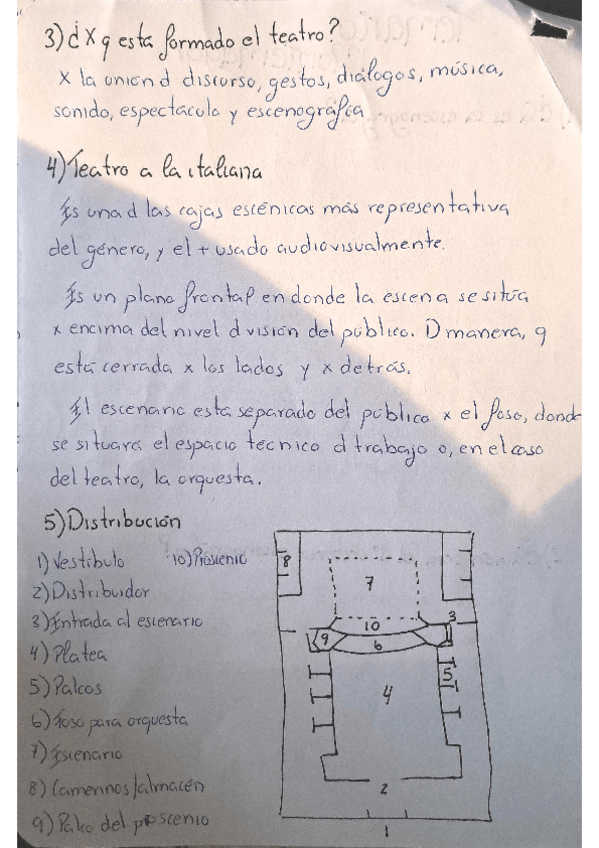 3) ¿X q está formado el teatro?
X la unión d discurso, gestos, diálogos, música,
sonido, espectáculo y escenografía
4) Teatro a la italiana
Es una d las cajas escénicas más representativa
del género, y el + usado audiovisualmente.
Es un plano frontal en donde la escena se sitúa
x encima del nivel d visión del público. D manera, q
está cerrada x los lados y x detrás.
El escenario está separado del público x el foso, donde
se situara el espacio técnico d trabajo o, en el caso
del teatro, la orquesta.
5) Distribución
1) Vestíbulo 10) Proscenio
2) Distribuidor
3) Entrada al escenario
4) Platea
5) Palcos
6) Foso para orquesta
7) Escenario
8) Camerinos/almacén
9) Palco del proscenio
8
7
3
10
9
6
5
4
2
1